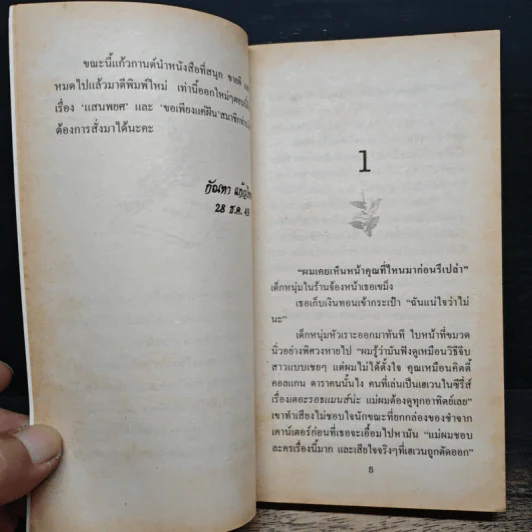 ขณะนี้แก้วกานต์นำหนังสือที่สนุก ขายดี
หมดไปแล้วมาตีพิมพ์ใหม่ เท่านี้ออกใหม่ๆตอน
เรื่อง 'แสนพยศ' และ 'ขอเพียงแค่ฝัน'สมาชิก
ต้องการสั่งมาได้นะคะ
กัณหา
28 ธ.ค.
1
"ผมเคยเห็นหน้าคุณที่ไหนมาก่อนรึเปล่า"
เด็กหนุ่มในร้านจ้องหน้าเธอเขม็ง
เธอเก็บเงินทอนเข้ากระเป๋า "ฉันแน่ใจว่าไม่
นะ"
เด็กหนุ่มหัวเราะออกมาทันที ใบหน้าที่ขมวด
นิ่วอย่างพิศวงหายไป "ผมรู้ว่ามันฟังดูเหมือนวิธีจีบ
สาวแบบเชยๆ แต่ผมไม่ได้ตั้งใจ คุณเหมือนคิตตี้
คอสแกน ดาราคนนั้นไง คนที่เล่นเป็นเฮเวนในซีรี่ส์
เรื่องเดอะรอธแมนส์น่ะ แม่ผมต้องดูทุกอาทิตย์เลย"
เขาทำเสียงไม่ชอบใจนักขณะที่ยกกล่องของชำจาก
เคาน์เตอร์ก่อนที่เธอจะเอื้อมไปหามัน "แม่ผมชอบ
ละครเรื่องนี้มาก และเสียใจจริงๆที่เฮเวนถูกตัดออก"
5